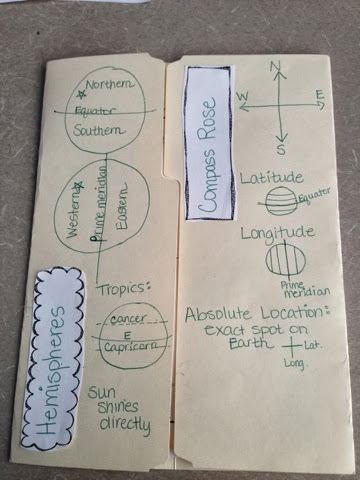 Northern
Equator
Southern
Western
Prime meridian
Eastern
Tropics:
Cancer
E
Capricorn
Hemispheres
Sun
shines
directly
Compass Rose
N
W E
S
Latitude
Equator
Longitude
Prime
meridian
Absolute Location:
exact spot on
Earth
Lat.
Long.